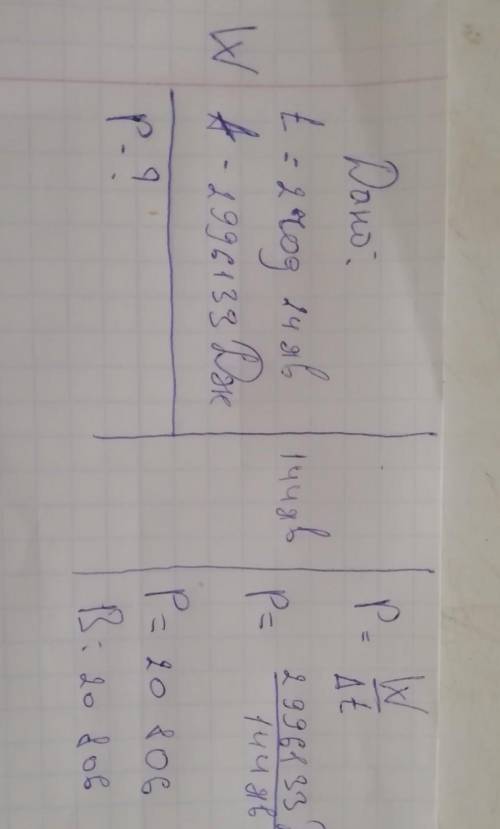 Дано:
t = 2 год 24 хв
W
A - 2996133 Дж
P - ?
144 хв
P = W / Δt
P = 2996133 / 144 хв
P = 20 806
В: 20 806